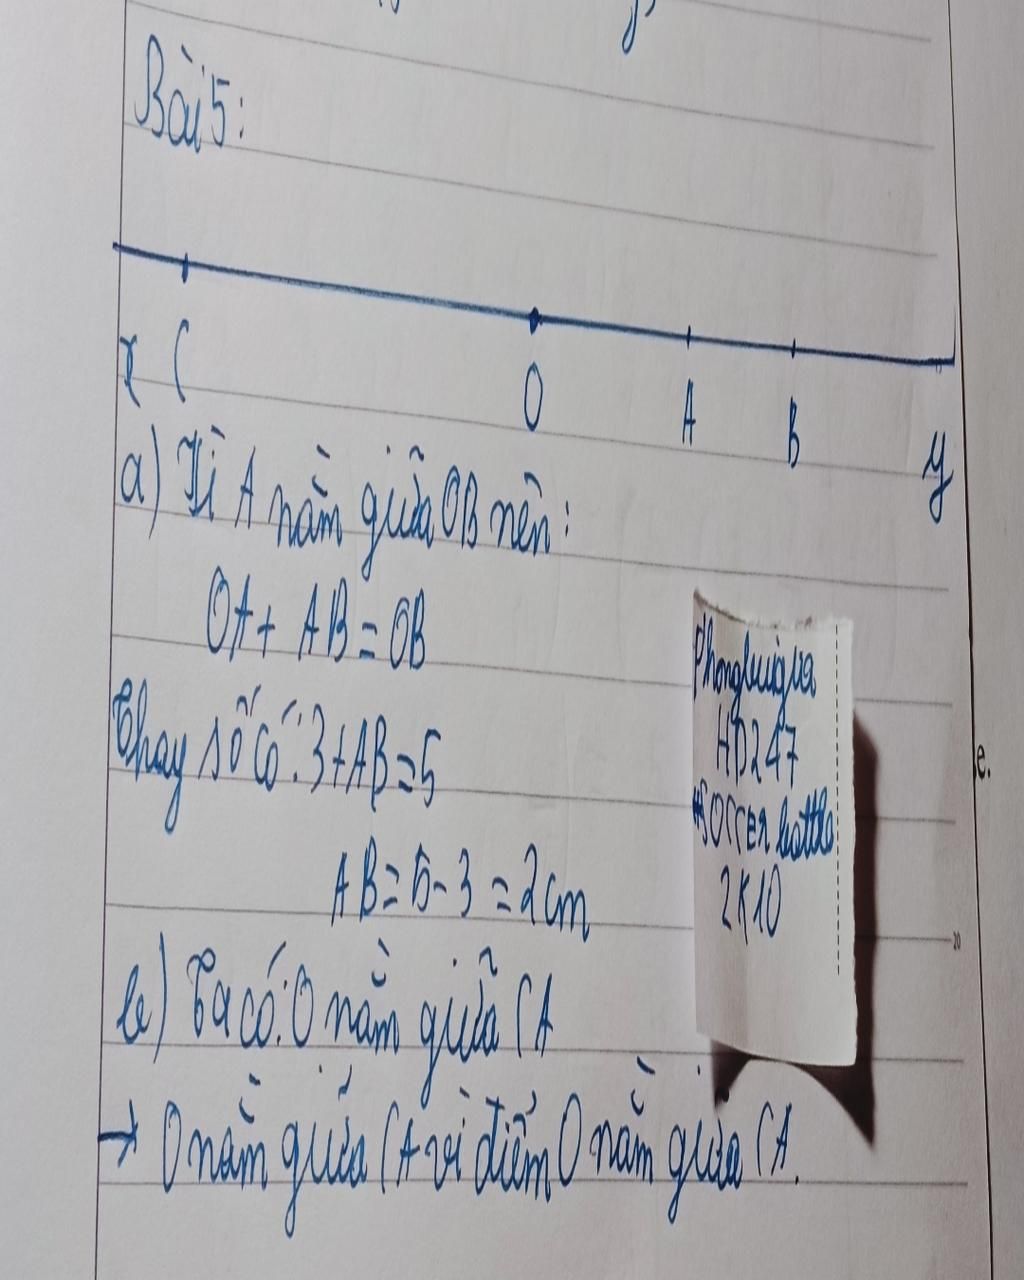 Bài 5:
x C O A B y
a) Vì A nằm giữa OB nên:
OA + AB = OB
Thay số có: 3 + AB = 5
AB = 5 - 3 = 2 cm
b) Ta có: O nằm giữa CA
→ O nằm giữa CA vì điểm O nằm giữa CA.
HD247
+SOCCER battle
2K10
e.
20